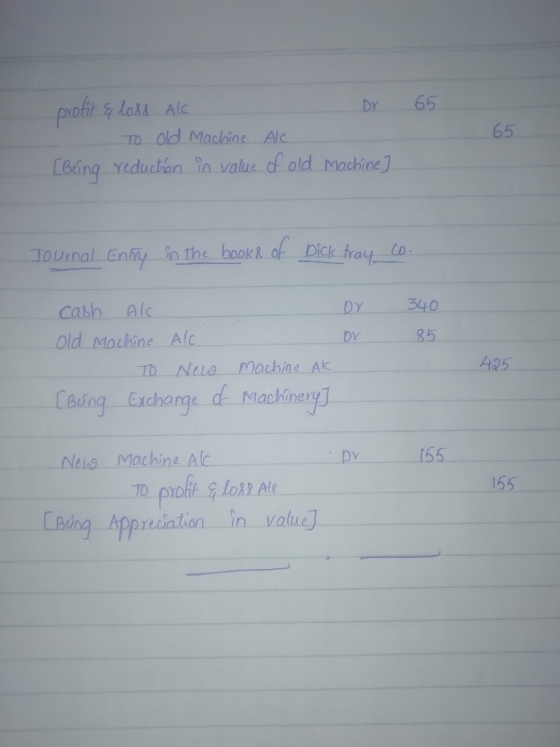 profit & loss A/c Dr 65
TO Old Machine A/c 65
[Being reduction in value of old Machine]
Journal Entry in the books of Dick tray Co.
Cash A/c Dr 340
Old Machine A/c Dr 85
TO New Machine A/c 425
[Being Exchange of Machinery]
New Machine A/c Dr 155
TO profit & loss A/c 155
[Being Appreciation in value]